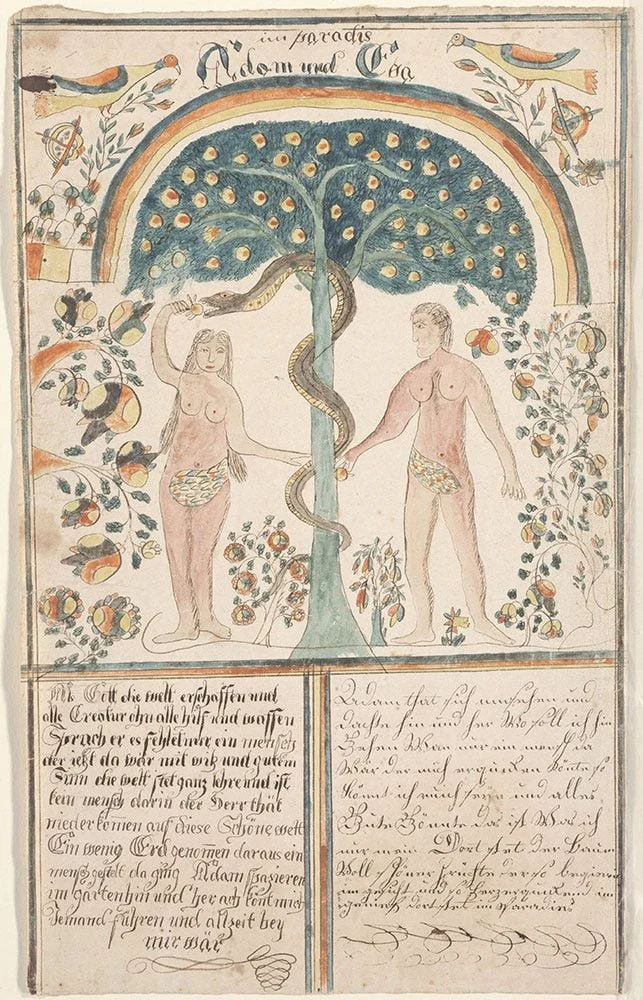 im paradis
Adam und Eva
Gott die welt erschaffen und
alle Creatur ohn alle hilf und waffen
Sprach er es fehlet nur ein mensch
der jetzt da wär mit witz und gutem
Sinn die welt stet ganz lehre und ist
kein mensch darin der Herr that
niederkomen auf diese Schöne welt
Ein wenig Erd genomen daraus ein
mensch gestelt da ging Adam spazieren
im garten hin und her ach könt mich
Jemand führen und allzeit bey
mir wär
Adam that sich umsehen und
dachte hin und her Wo soll ich hin
Gehen Wan nur ein mensch da
Wär der mich ergötzen könte so
könnt ich ruich sein und alles
Gute könnte das ist Was ich
nur mein Dort stet der Baum
Voll schöner früchte der so begierig
im gesicht und so herzerquickend im
genies dort stet im Paradies